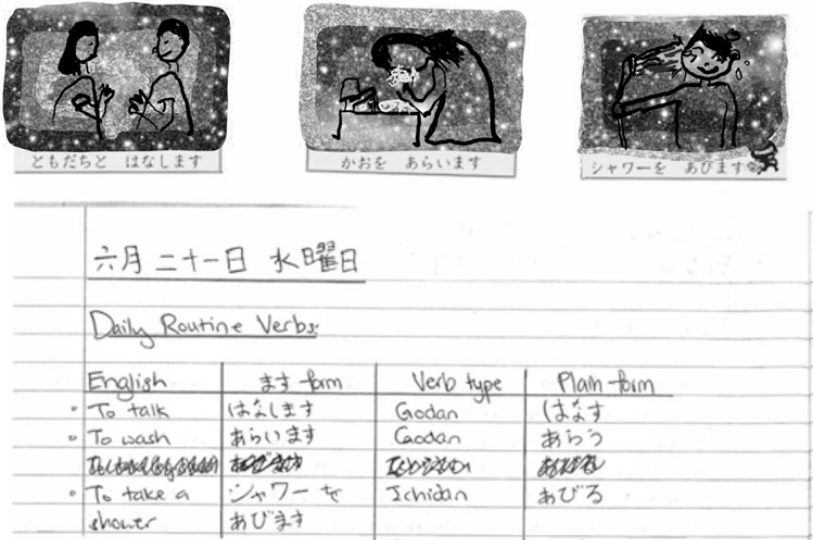 ともだちと はなします
かおを あらいます
シャワーを あびます
六月二十一日 水曜日
Daily Routine Verbs:
English ます form Verb type Plain form
To talk はなします Godan はなす
To wash あらいます Godan あらう
To take a シャワーを Ichidan あびる
shower あびます